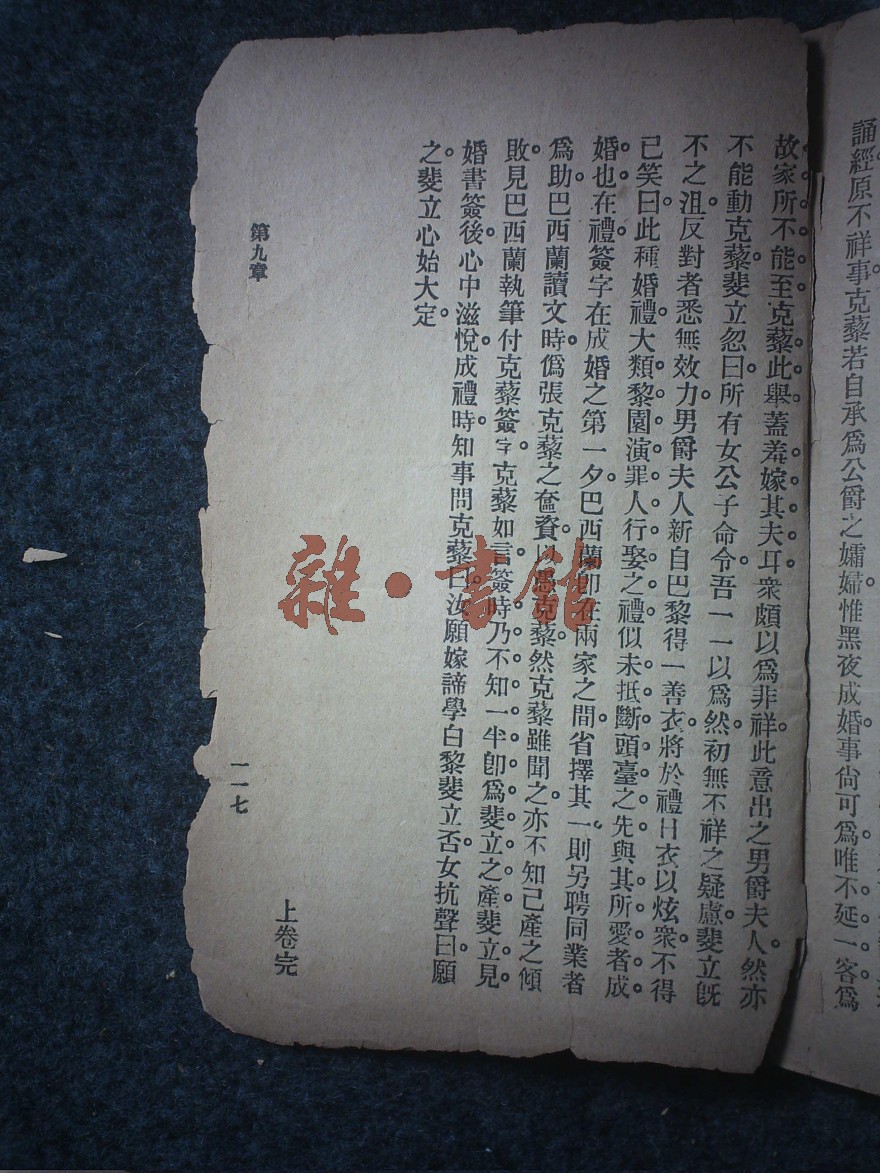 誦經。原不祥事。克藜若自承爲公爵之孀婦。惟黑夜成婚。事尙可爲。唯不延一客爲
故家所不能至。克藜此舉。蓋羌嫁其夫耳。衆頗以爲非祥。此意出之男爵夫人。然亦
不能動克藜。斐立忽曰。所有女公子命令。吾一一以爲然。初無不祥之疑慮。斐立旣
不之沮。反對者悉無效力。男爵夫人新自巴黎得一善衣。將於禮日衣以炫衆。不得
已笑曰。此種婚禮。大類黎園演罪人行娶之禮。似未抵斷頭臺之先。與其所愛者成
婚也。在禮簽字在成婚之第一夕。巴西蘭卽在兩家之間。省擇其一。則另聘同業者
爲助。巴西蘭讀文時。僞張克藜之奩資。以愚克藜。然克藜雖聞之。亦不知己產之傾
敗。見巴西蘭執筆付克藜簽字。克藜如言簽時。乃不知一半卽爲斐立之產。斐立見
婚書簽後。心中滋悅。成禮時。知事問克藜曰。汝願嫁諦學白黎斐立否。女抗聲曰。願
之。斐立心始大定。
第九章
一一七
上卷完
雜·書館